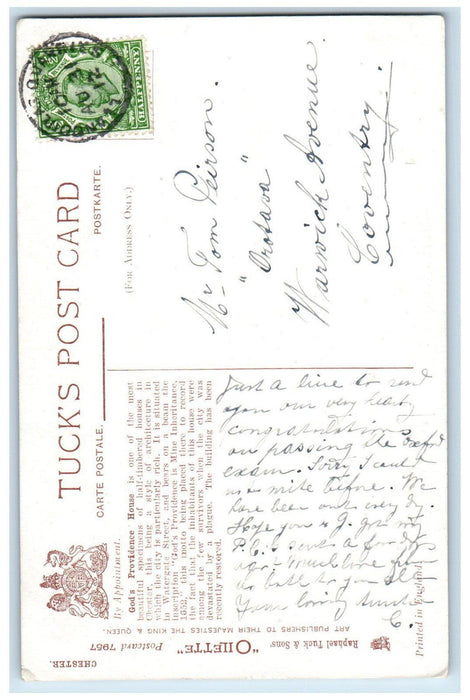 TUCK'S POST CARD
CARTE POSTALE.
POSTKARTE.
(FOR ADDRESS ONLY.)
HALFPENNY
By Appointment.
God's Providence House is one of the most
beautiful specimens of half-timbered houses in
Chester, this being a style of architecture in
which the city is particularly rich. It is situated
in Watergate Street, and bears on a beam the
inscription "God's Providence is Mine Inheritance,
1652," this motto being placed there to record
the fact that the inhabitants of this house were
among the few survivors when the city was
devastated by a plague. The building has been
recently restored.
CHESTER.
Raphael Tuck & Sons' "OILETTE" Postcard 7957
ART PUBLISHERS TO THEIR MAJESTIES THE KING & QUEEN.
Printed in England.
Mr Tom Peirson.
"Orotava"
Warwick Avenue
Coventry.
Just a line to send
you our very hearty
congratulations
on passing the Oxford
exam. Sorry I could
not write before. We
have been out every day.
Hope you &
P.C.s
love from
us both to you all
Your loving Auntie
C.